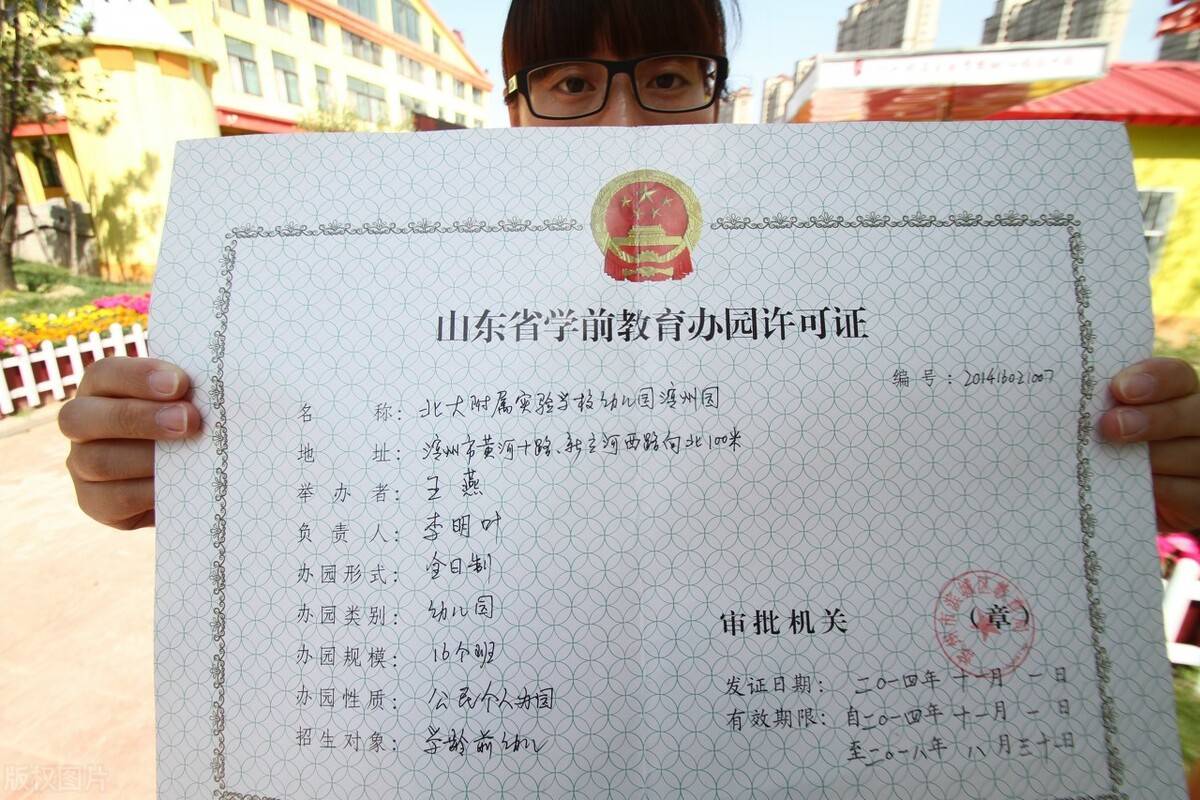 山东省学前教育办园许可证
编号：201416021007
名称：北大附属实验学校幼儿园滨州园
地址：滨州市黄河十路、新立河西路向北100米
举办者：王燕
负责人：李明叶
办园形式：全日制
办园类别：幼儿园
办园规模：16个班
办园性质：公民个人办园
招生对象：学龄前幼儿
审批机关（章）
发证日期：二〇一四年十一月一日
有效期限：自二〇一四年十一月一日
至二〇一八年八月三十一日
版权图片